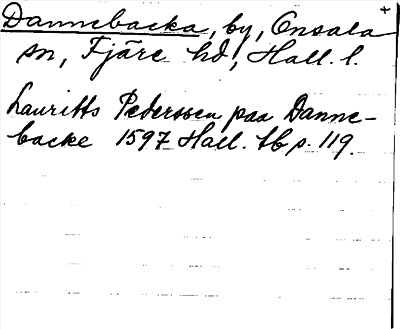 Dannebacka, by, Onsala +
sn, Fjäre hd, Hall. l.
Lauritts Pederssen paa Danne-
backe 1597 Hall. tb p. 119.